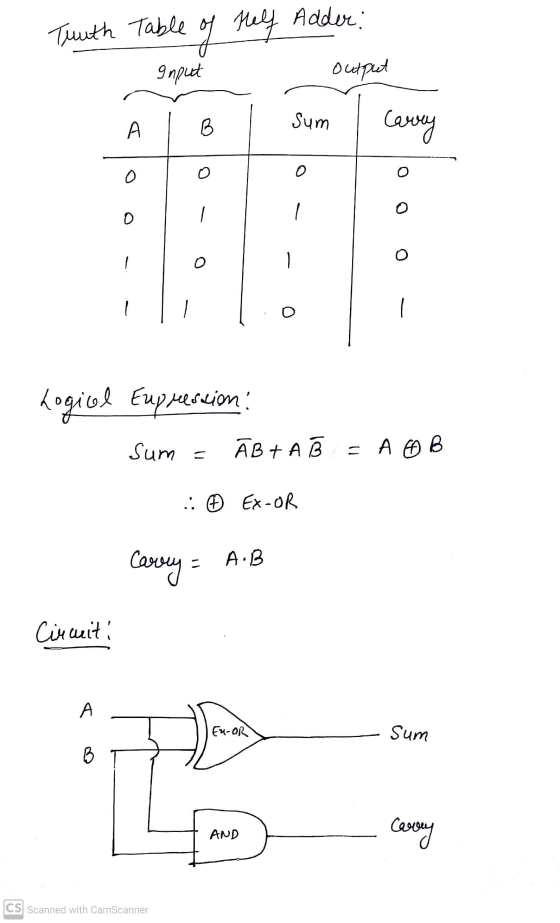 Truth Table of Half Adder:
Input Output
A B Sum Carry
0 0 0 0
0 1 1 0
1 0 1 0
1 1 0 1
Logical Expression:
Sum = A̅B + AB̅ = A ⊕ B
∴ ⊕ Ex-OR
Carry = A·B
Circuit:
A
Ex-OR Sum
B
AND Carry
CS Scanned with CamScanner